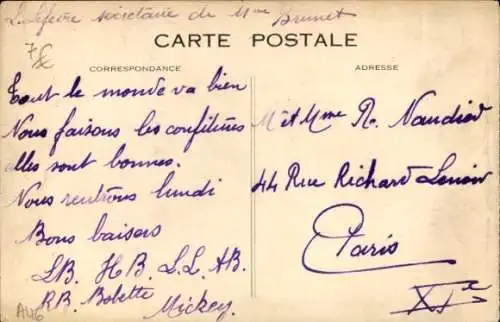 L. Lefevre secretaire de Mme Brunet
CARTE POSTALE
CORRESPONDANCE
ADRESSE
Tout le monde va bien
Nous faisons les confitures
elles sont bonnes.
Nous rentrons lundi
Bons baisers
LB. HB. L.L. AB.
RB. Bobette
Mickey.
M et Mme Re. Naudied
44 Rue Richard Lenoir
Paris
XIe
AU6